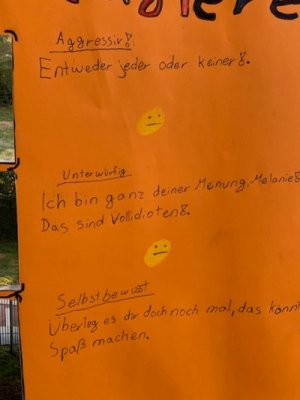 Aggressiv!
Entweder jeder oder keiner!.
Unterwürfig
Ich bin ganz deiner Meinung, Melanie!
Das sind Vollidioten!.
Selbstbewusst
Überleg es dir doch noch mal, das kann
Spaß machen.